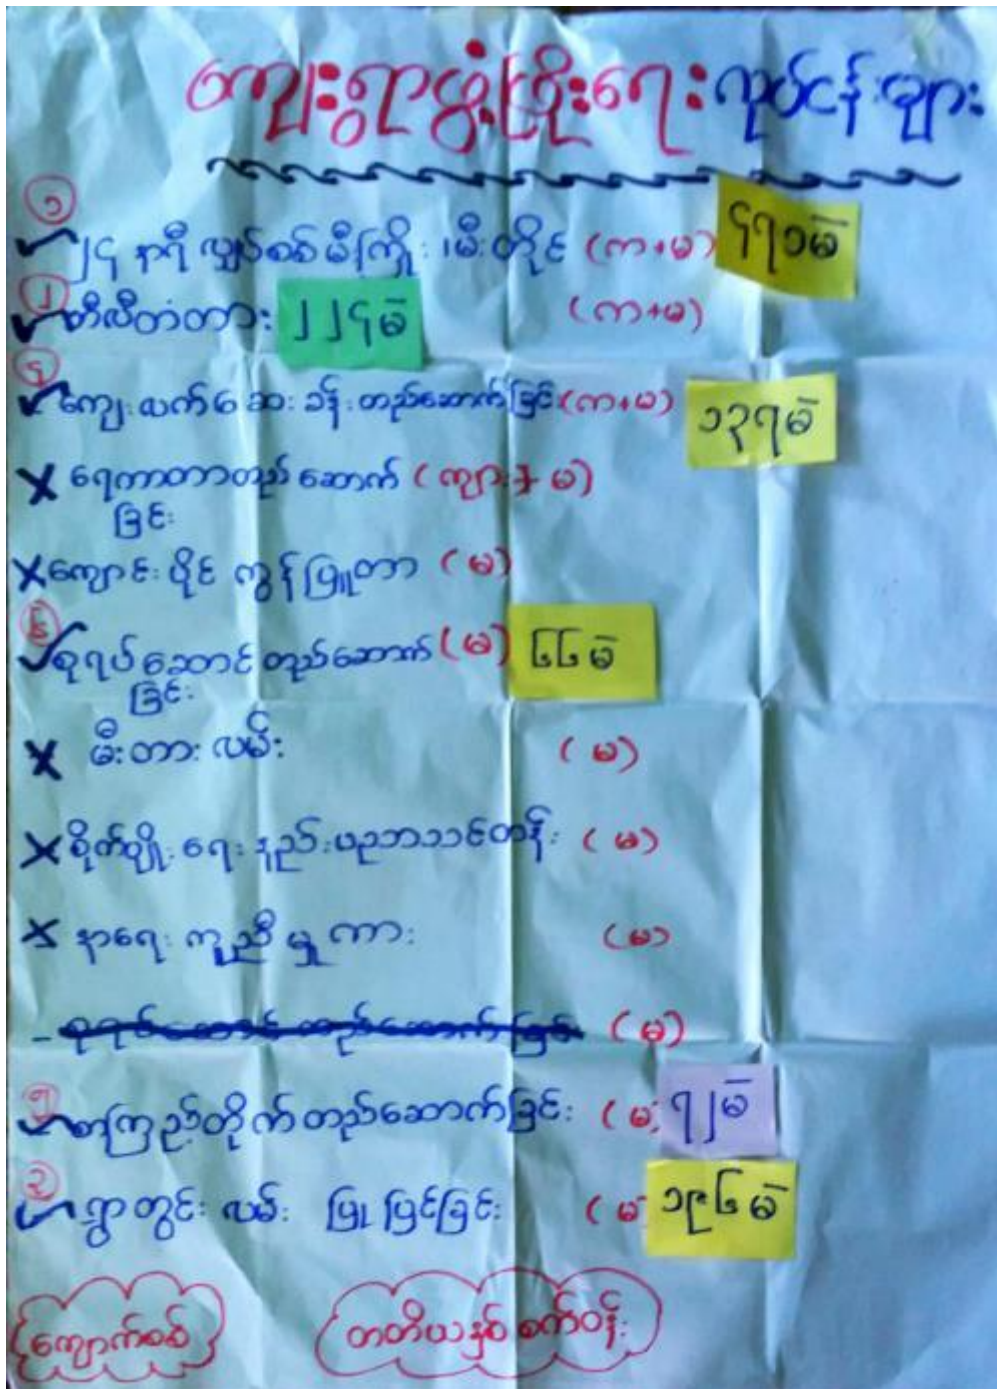 ကျေးရွာဖွံ့ဖြိုးရေး လုပ်ငန်းများ
၁
၂၄ နာရီ လျှပ်စစ်မီးကြိုး၊ မီးတိုင် (က+မ) ၄၇၁မဲ
၂
တီလီတံတား ၂၂၄မဲ (က+မ)
၄
ကျေးလက်ဆေးခန်းတည်ဆောက်ခြင်း (က+မ) ၁၃၇မဲ
ရေကာတာတည်ဆောက် (ကျား + မ)
ခြင်း
ကျောင်းပိုင် ကွန်ပြူတာ (မ)
၆
စုရပ်ဆောင်တည်ဆောက် (မ) ၆၆မဲ
ခြင်း
မီးတားလမ်း (မ)
စိုက်ပျိုးရေးနည်းပညာသင်တန်း (မ)
နာရေးကူညီမှုကား (မ)
- စုရပ်ဆောင်တည်ဆောက်ခြင်း (မ)
၅
စာကြည့်တိုက်တည်ဆောက်ခြင်း (မ) ၇၂မဲ
၃
ရွာတွင်းလမ်း ပြုပြင်ခြင်း (မ) ၁၉၆မဲ
ကျောက်စစ် တတိယနှစ်စက်ဝန်း